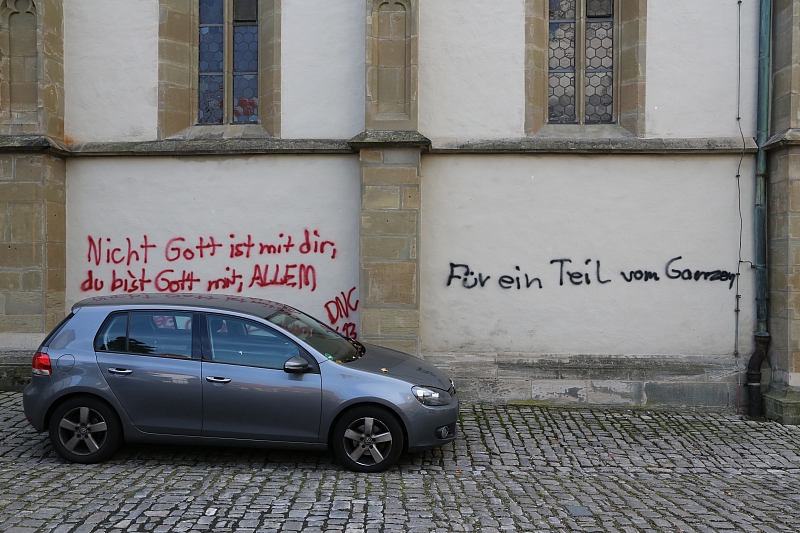 Nicht Gott ist mit dir,
du bist Gott mit, ALLEM
DNC
Für ein Teil vom Ganzen